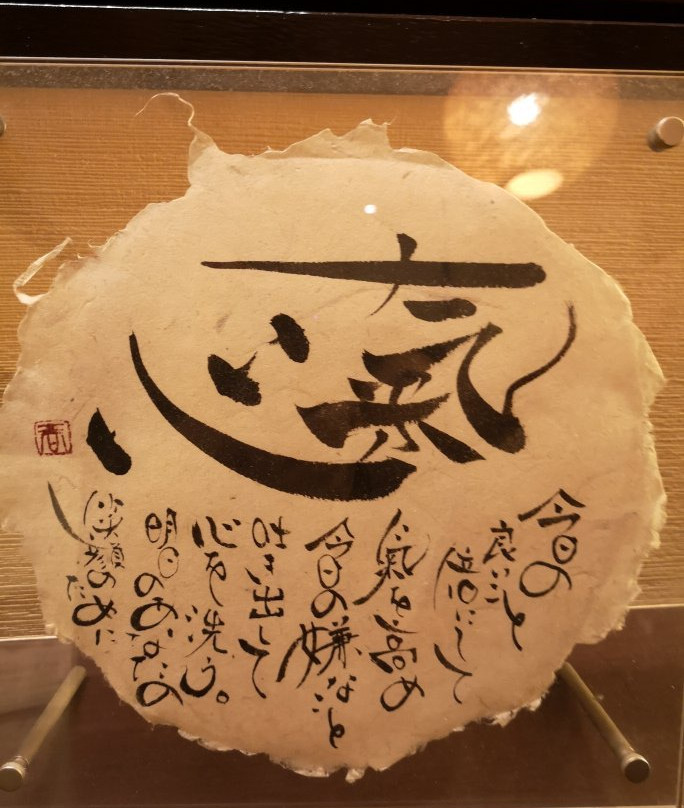 氣心
今日の
良いこと
にして
氣を高め
今日の嫌なこと
吐き出して
心を洗う。
明日のあなたの
笑顔のために
春